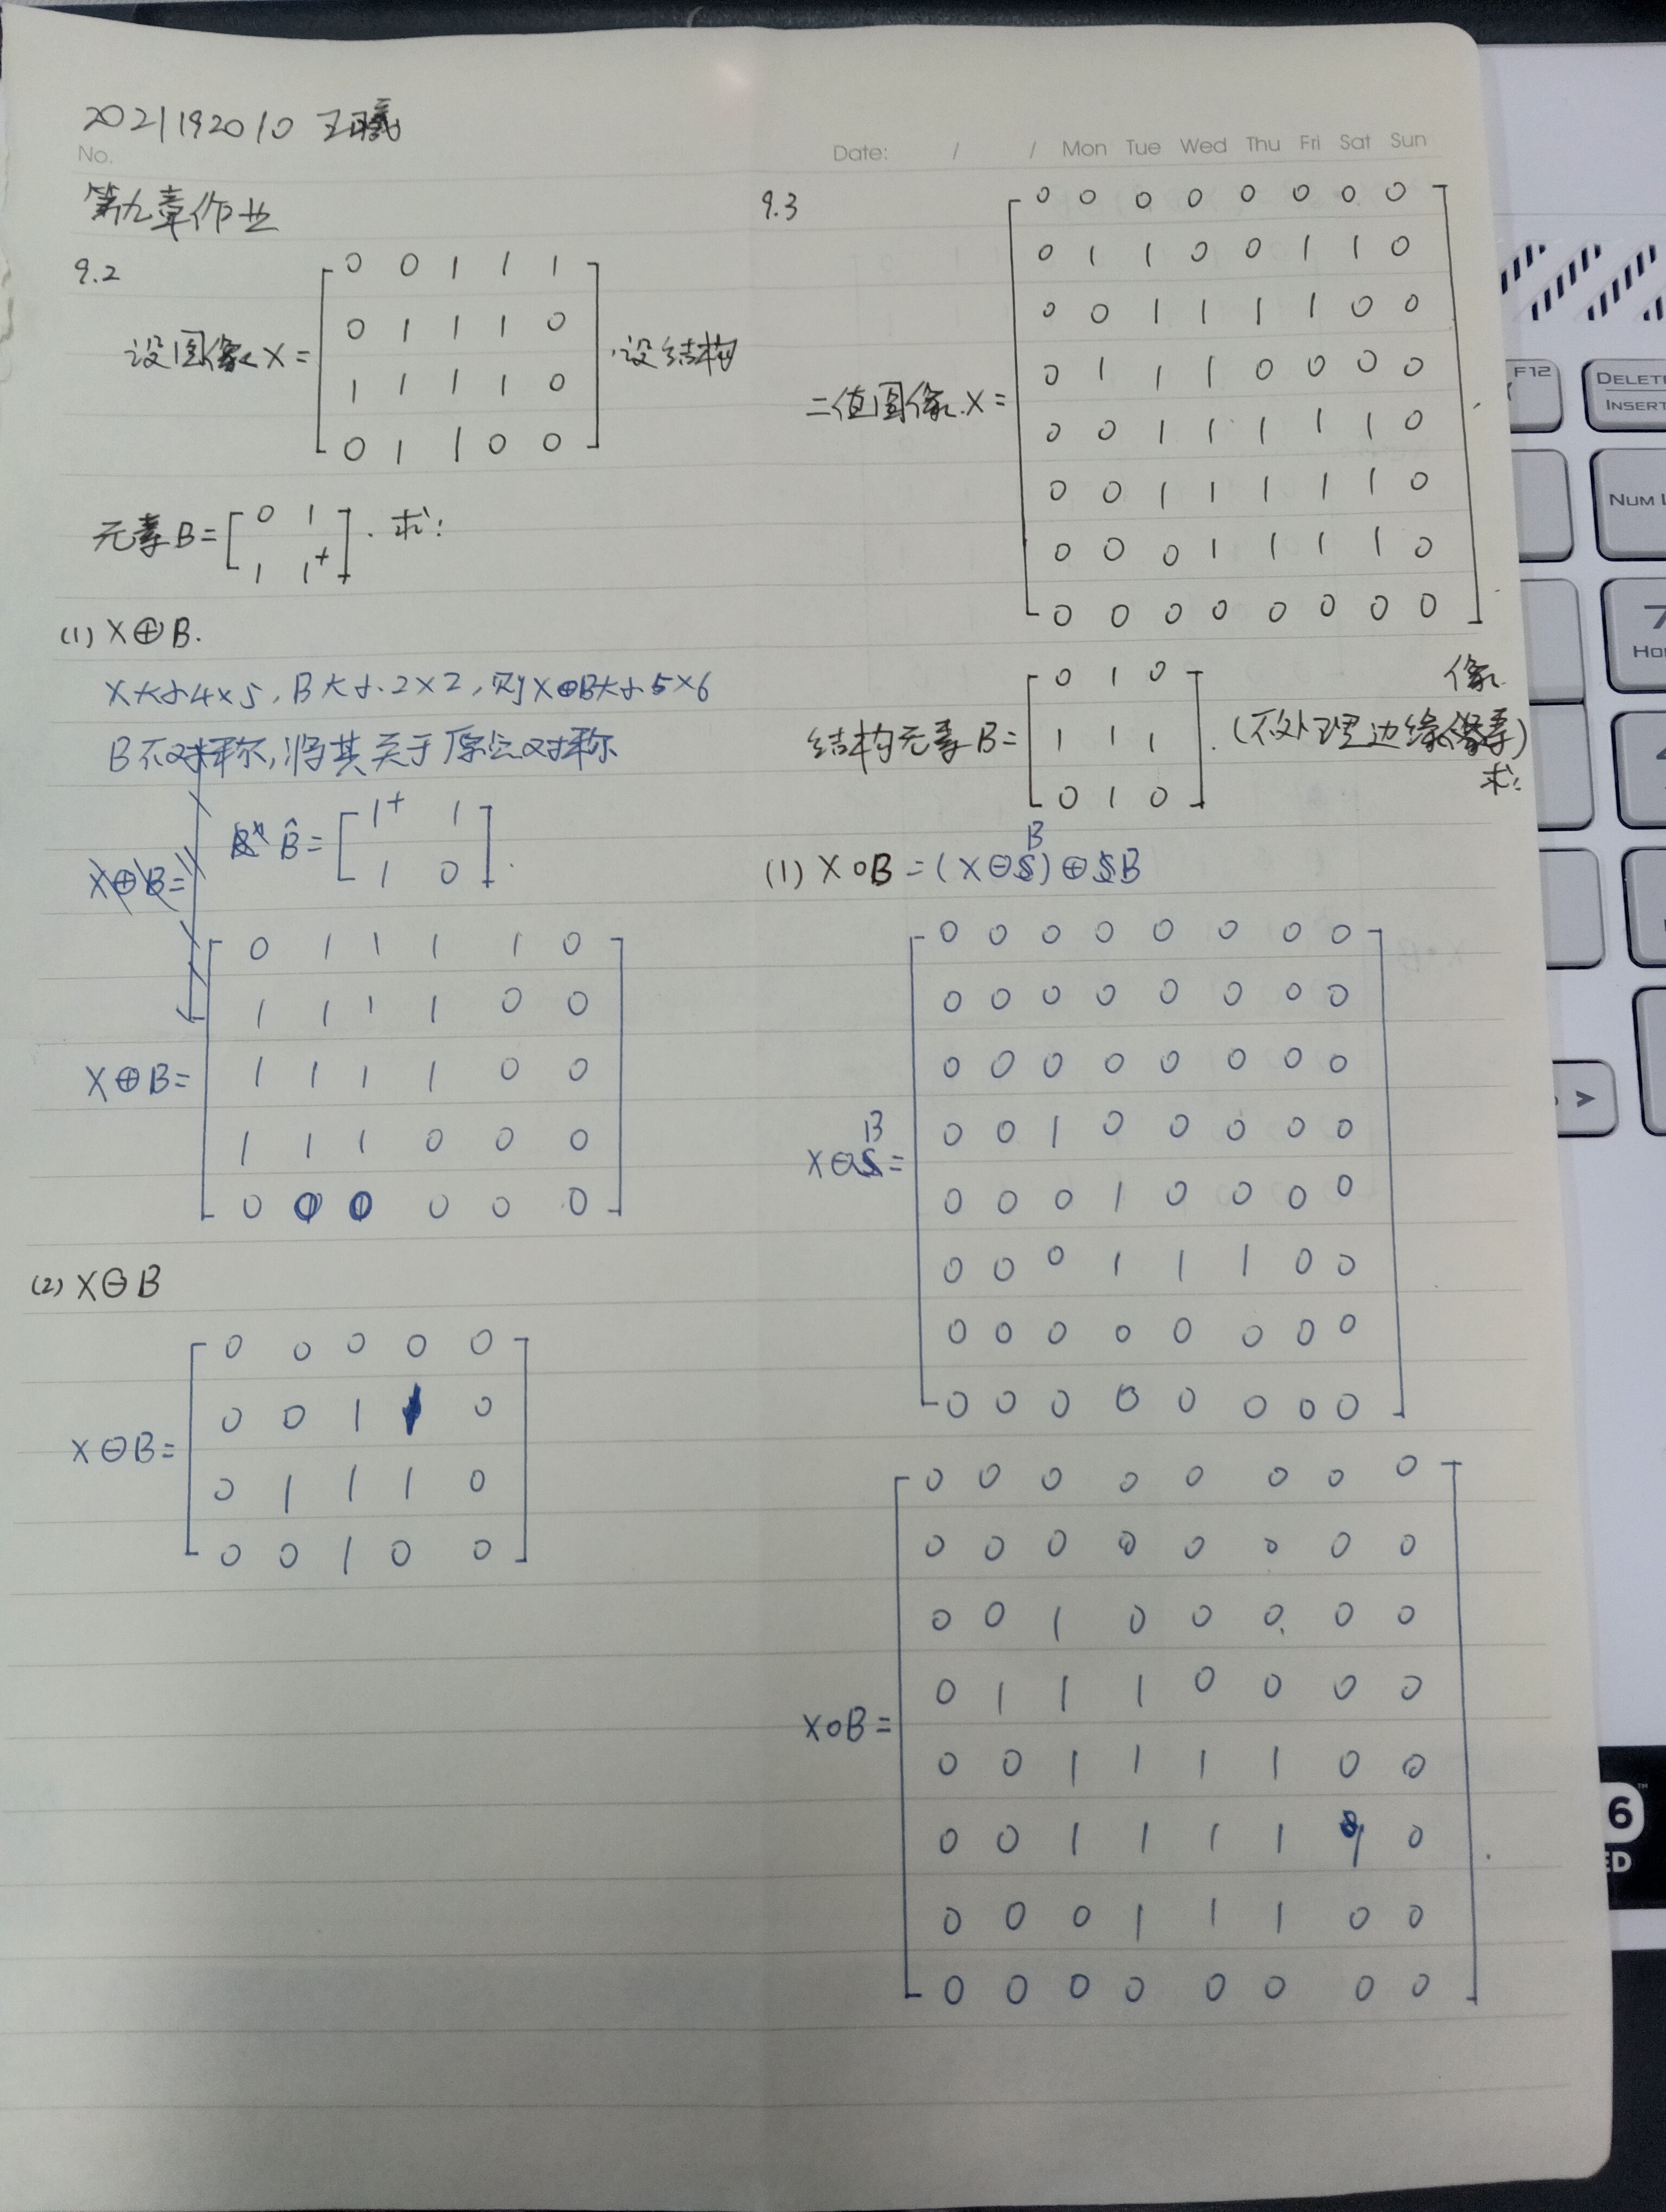 2021192010 王曦
No.
Date: / / Mon Tue Wed Thu Fri Sat Sun
第九章作业
9.2
设图像X=
0 0 1 1 1
0 1 1 1 0
1 1 1 1 0
0 1 1 0 0
.设结构
元素B=
0 1
1 1+
. 求:
(1) X⊕B.
X大小4×5, B大小2×2, 则X⊕B大小5×6
B不对称,将其关于原点对称
B̂=
1+ 1
1 0
.
X⊕B=
X⊕B=
0 1 1 1 1 0
1 1 1 1 0 0
1 1 1 1 0 0
1 1 1 0 0 0
0 0 0 0 0 0
(2) X⊖B
X⊖B=
0 0 0 0 0
0 0 1 1 0
0 1 1 1 0
0 0 1 0 0
9.3
二值图像.X=
0 0 0 0 0 0 0 0
0 1 1 0 0 1 1 0
0 0 1 1 1 1 0 0
0 1 1 1 0 0 0 0
0 0 1 1 1 1 1 0
0 0 1 1 1 1 1 0
0 0 0 1 1 1 1 0
0 0 0 0 0 0 0 0
结构元素B=
0 1 0
1 1 1
0 1 0
.(不处理边缘像素)
求:
(1) X∘B=(X⊖B)⊕B
X⊖B=
0 0 0 0 0 0 0 0
0 0 0 0 0 0 0 0
0 0 0 0 0 0 0 0
0 0 1 0 0 0 0 0
0 0 0 1 0 0 0 0
0 0 0 1 1 1 0 0
0 0 0 0 0 0 0 0
0 0 0 0 0 0 0 0
X∘B=
0 0 0 0 0 0 0 0
0 0 0 0 0 0 0 0
0 0 1 0 0 0 0 0
0 1 1 1 0 0 0 0
0 0 1 1 1 1 0 0
0 0 1 1 1 1 1 0
0 0 0 1 1 1 0 0
0 0 0 0 0 0 0 0
F12
DELETE
INSERT
NUM L
7
Ho
4
>
6
ED